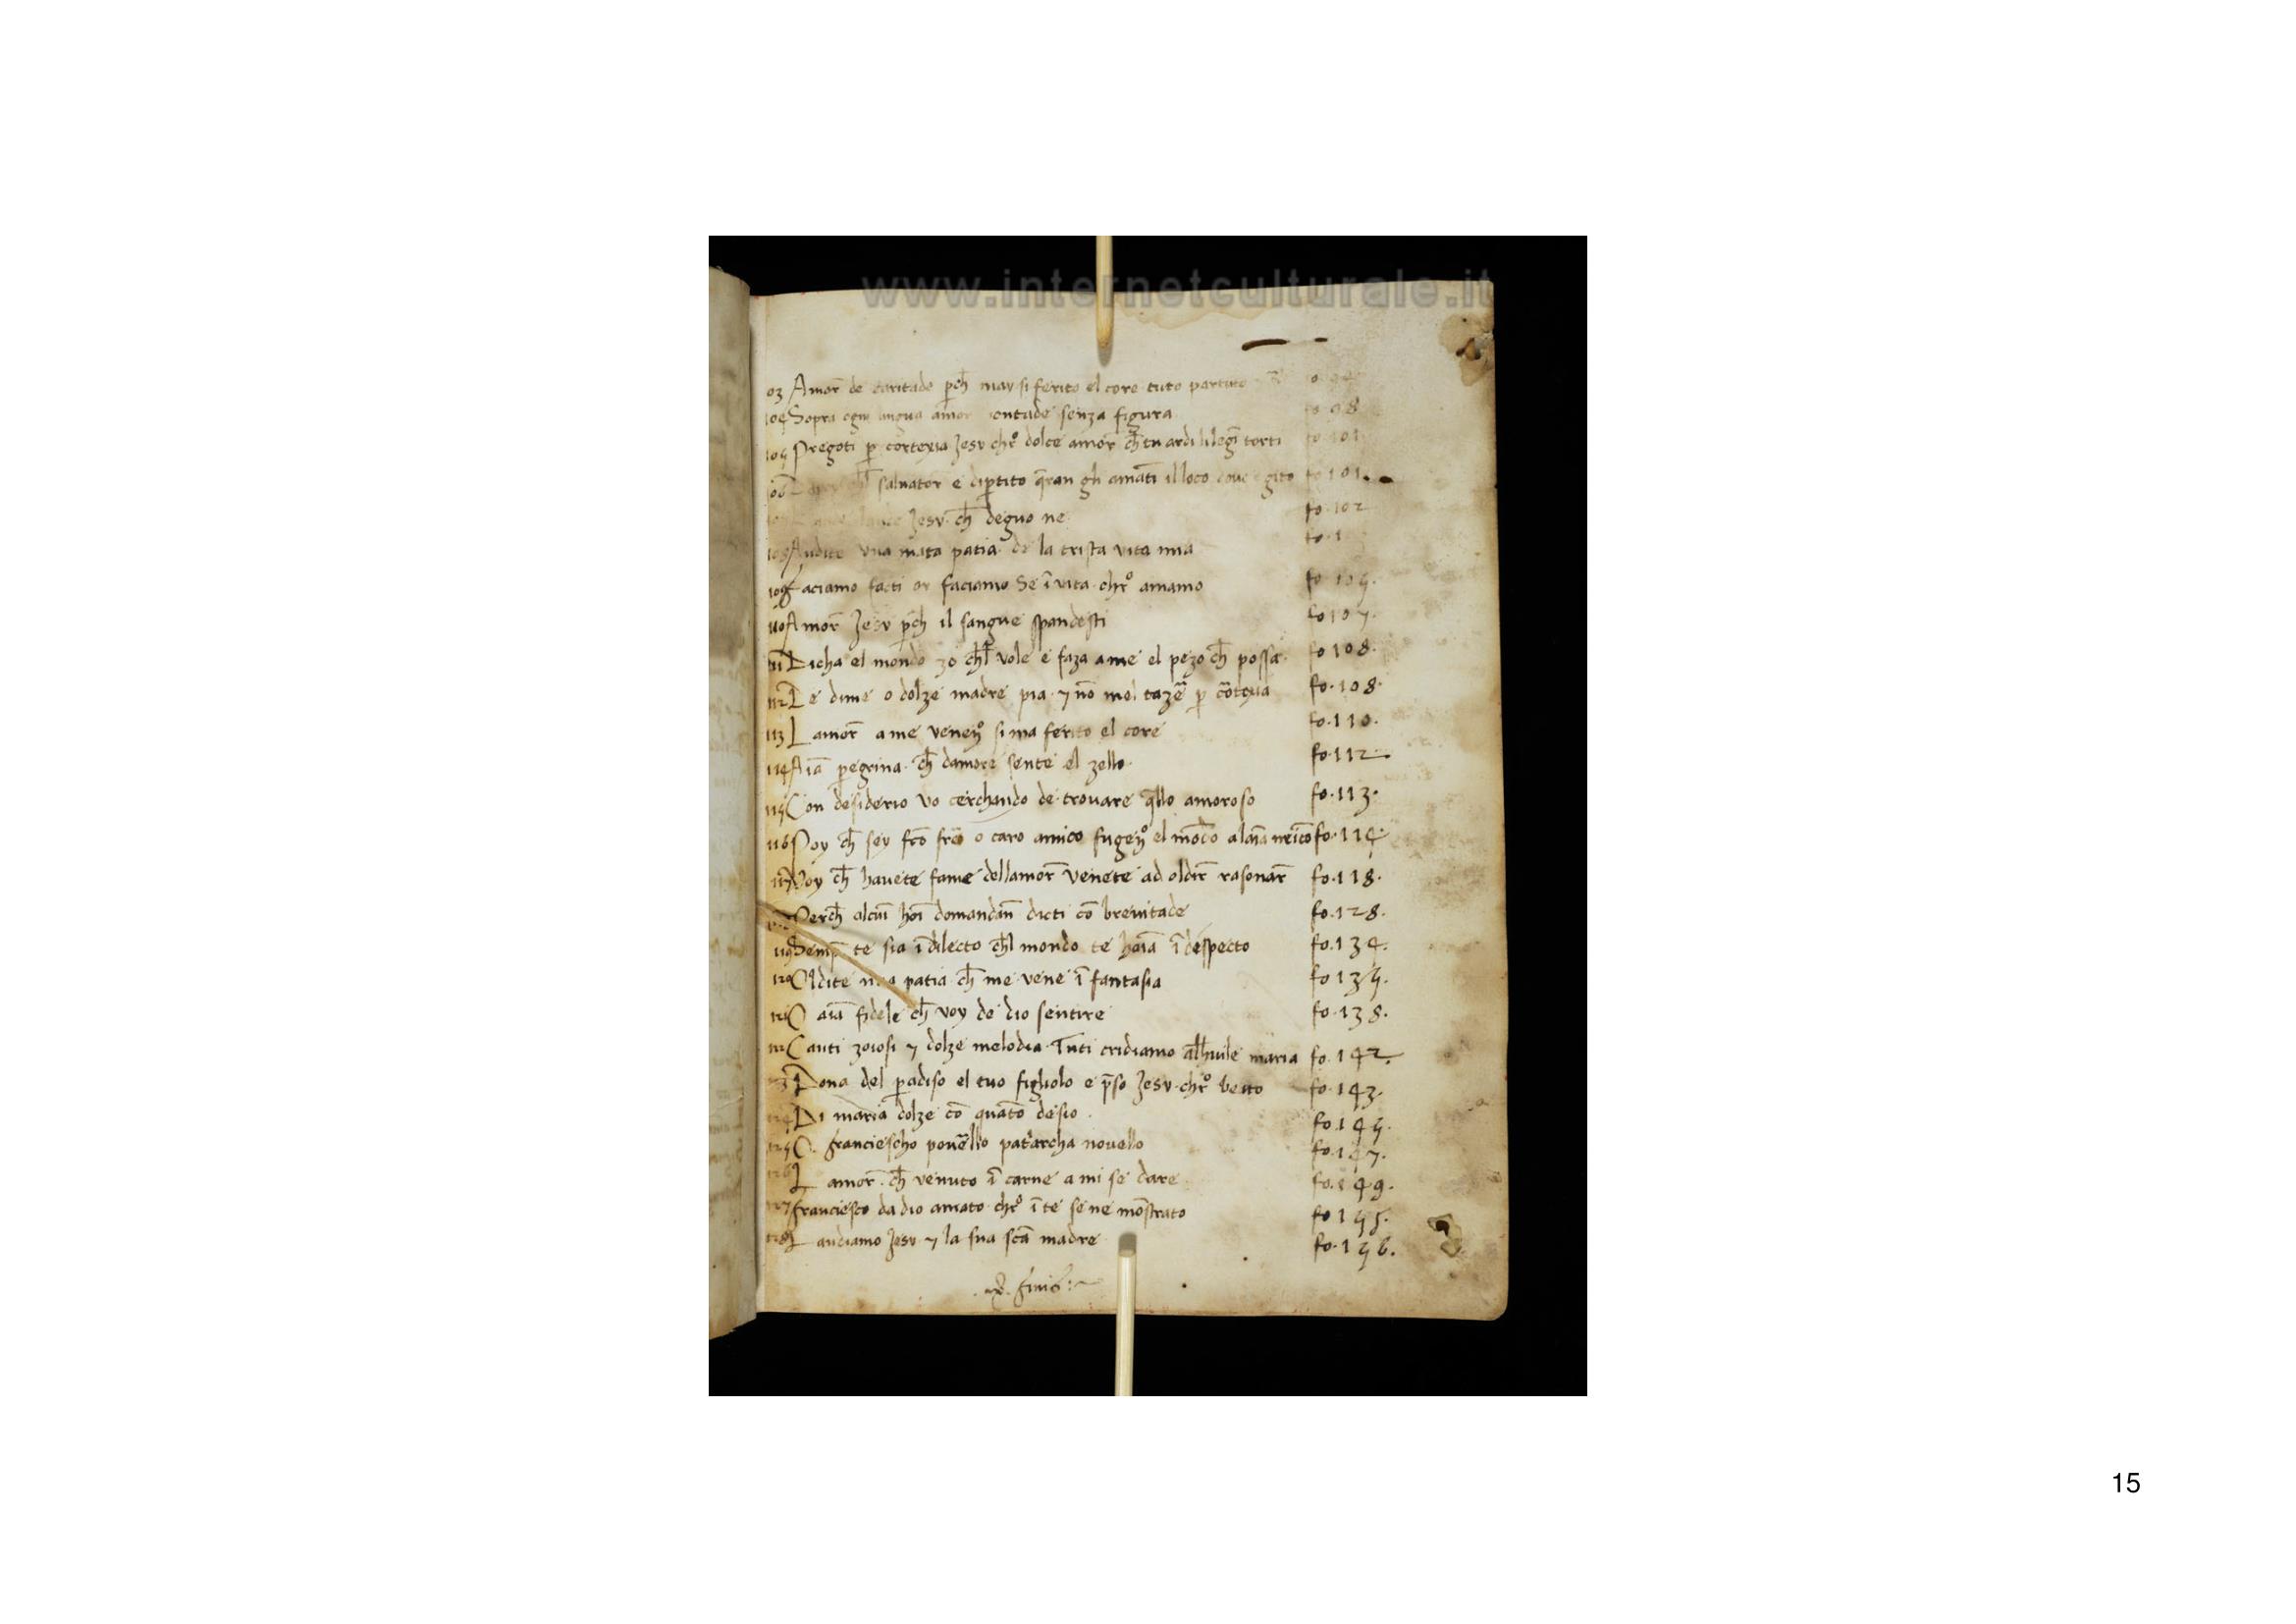 www.internetculturale.it
03 Amor̄ de caritade ꝑch̄ may si ferito el core tuto partuto
104 Sopra ogni lingua amor bontade senza figura fo 98
105 Pregoti ꝑ cortexia Jesu chr̊o dolce amor̄ ch̄ tu ardi li legī torti fo 101
106 salvator̄ e diꝑtito q̄ran gli amāti il loco dove gito fo 101.
Jesu ch̄ deguo ne fo. 102
Audite una mata patia de la trista vita mia fo. 1
109 Faciamo facti or faciamo Se ī vita chr̊o amamo fo 105.
110 Amor̄ Jesu ꝑch̄ il sangue spandesti fo 107.
111 Dicha el mondo zo ch̄l vole e faza a me el pezo ch̄ possa. fo 108.
112 De dime o dolze madre pia ⁊ nō mel tazē ꝑ fo. 108.
113 L amor̄ a me si ma ferito el core fo. 110.
114 Aīa ꝑegrina. ch̄ damore sente el zello. fo. 112
115 Con desiderio vo cerchando de trovare q̄llo amoroso fo. 113.
116 Poy ch̄ sey fc̄o o caro amico el mōdo fo. 114.
117 Voy ch̄ havete fame dellamor̄ venete ad oldir̄ rasonar̄ fo. 118.
Perch̄ alcuī hoī domandan̄ dicti cō brevitade fo. 128.
119 Semp̄ te sia ī dilecto ch̄l mondo te ī despecto fo. 134.
120 Oldite una patia ch̄ me vene ī fantasia fo 135.
121 O aīa fidele ch̄ voy de dio sentire fo. 138.
122 Canti zoiosi ⁊ dolze melodia. Tuti cridiamo maria fo. 142.
3 Dona del ꝑadiso el tuo figliolo e p̄so Jesu. chr̊o beato fo. 143.
124 Di maria dolze cō quāto desio. fo. 145.
125 O. franciescho povēllo pat̄archa novello fo. 147.
126 L amor̄. ch̄ venuto ī carne a mi se dare fo. 149.
127 franciesco da dio amato. chr̊o ī te se ne mōstrato fo 155.
128 Laudiamo Jesu ⁊ la sua scā madre fo. 156.
finis
15